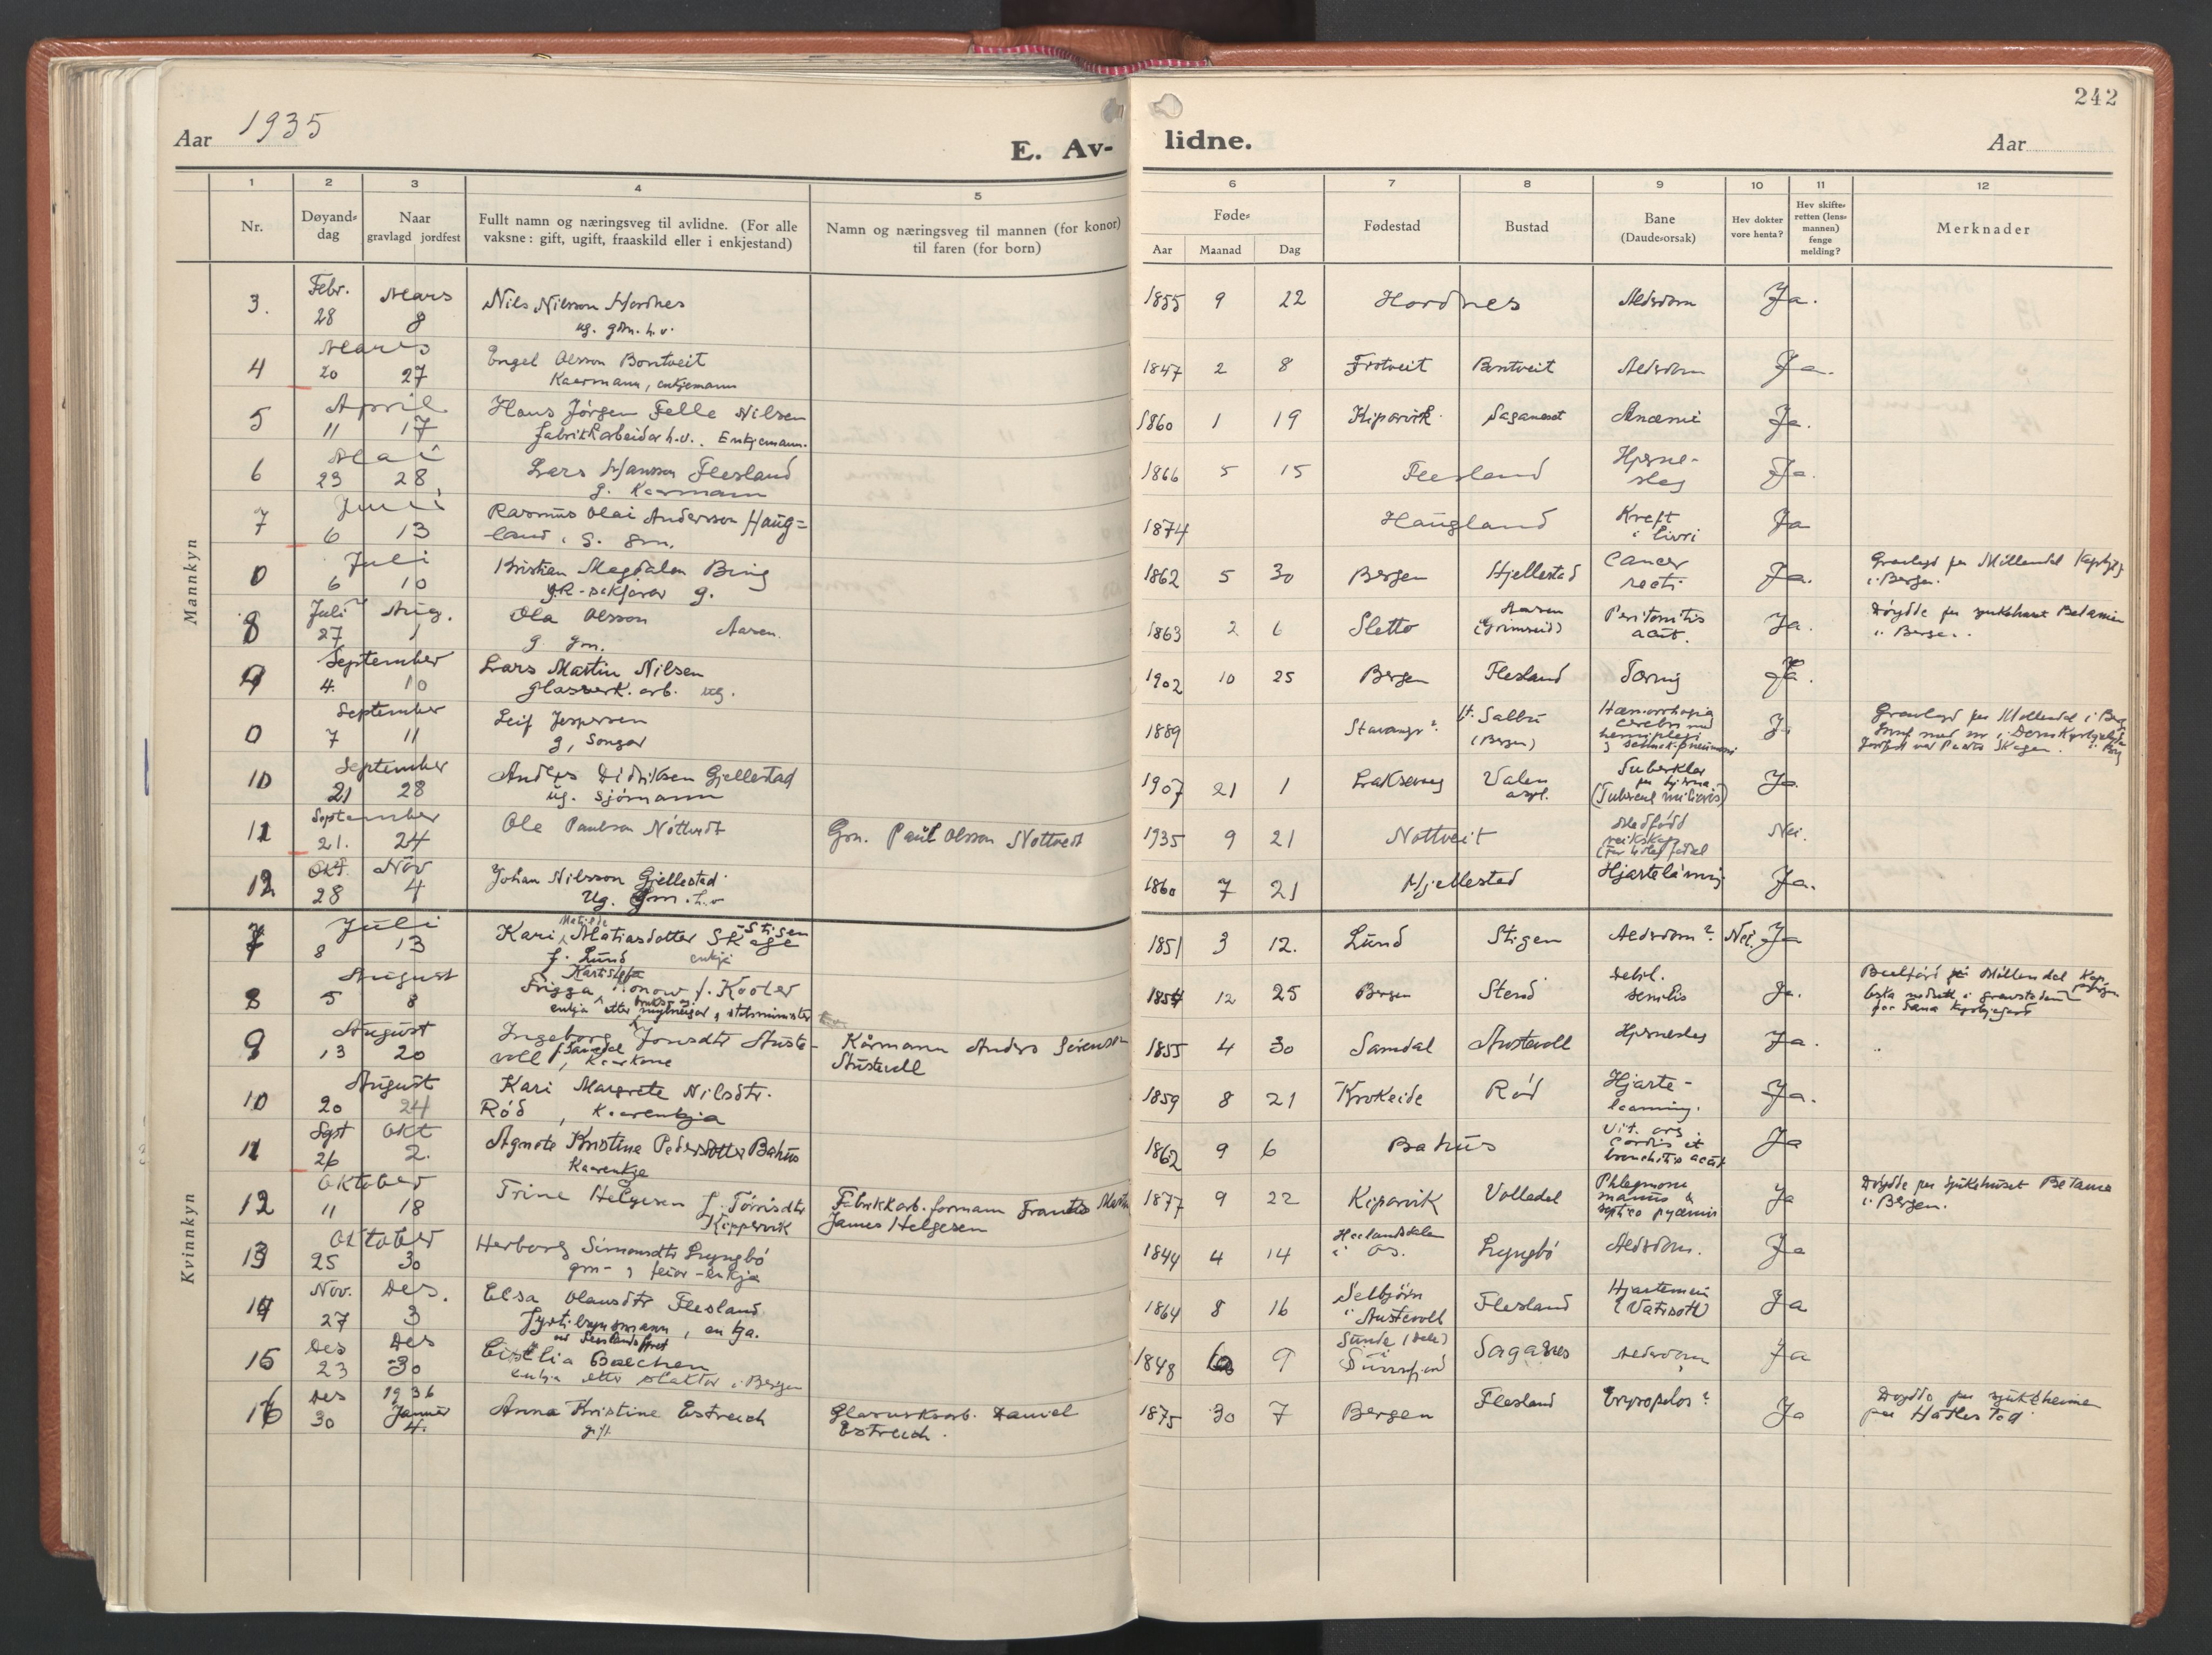 242
Aar 1935
E. Av-
lidne.
Aar
1 2 3 4 5 6 7 8 9 10 11 12
Nr.
Døyand-
dag
Naar
gravlagd jordfest
Fullt namn og næringsveg til avlidne. (For alle
vaksne: gift, ugift, fraaskild eller i enkjestand)
Namn og næringsveg til mannen (for konor)
til faren (for born)
Føde-
Aar Maanad Dag
Fødestad
Bustad
Bane
(Daude-orsak)
Hev dokter
vore henta?
Hev skifte-
retten (lens-
mannen)
fenge
melding?
Merknader
Mannkyn
3. Febr. 28 Mars 8 Nils Nilsson Hordnes 1855 9 22 Hordnes Aldsdom Ja.
ug. gbn. h.v.
4 Mars 20 27 Engel Olsson Bontveit 1847 2 8 Frotveit Bontveit Aldsdom Ja.
Kaarmann, enkjemann
5 April 11 17 Hans Jørgen Felle Nilsen 1860 1 19 Kiparvik Saganeset Anæmi Ja.
fabrikkarbeidar h.v. Enkjemann.
6 Mai 23 28 Lars Johansson Flesland 1866 5 15 Flesland Hjerne-
slag Ja.
g. Kaarmann
7 Juni 6 13 Rasmus Olai Andersson Haug-
land, g. gm. 1874 Haugland Kreft
i livri Ja
0 Juli 6 10 Kristian Magdalon Bing 1862 5 30 Bergen Hjellestad Cancer
recti Ja. Gravlagd paa Møllendal
i Bergen.
O.R-sakførar g.
8 Juli 27 Aug. 1 Ola Olsson Aasen. 1863 2 6 Sletto Aasen
(Grimseid) Peritonitis
acut. Ja. Døydde paa sjukehuset Betanien
i Bergen.
g gm.
9 September 4. 10 Lars Martin Nilsen 1902 10 25 Bergen Flesland Tæring Ja.
glasverk. arb. ug.
0 September 7 11 Leif Jespersen 1889 Stavanger? St. Salbu
(Bergen) Hæmorrhagia
cerebri med
hemiplegi Ja Gravlagd paa Møllendal i Berg
g, Songar
10 September 21 28 Anders Didriksen Gjellestad 1907 21 1 Laksevaag Valen
asyl. Tuberklar
paa hjerna
(Tubercul miliaris) Ja
ug. sjømann
11 September 21. 24 Ole Paulson Nøttveit Gm. Paul Olsson Nottveit 1935 9 21 Nottveit Medfødd
veikskap Nei.
12 Okt. 28 Nov 4 Johan Nilsson Gjellestad 1860 7 21 Hjellestad Hjartelaming Ja.
Ug. Gm. h.v
Kvinnkyn
7 Juli 8 13 Kari Matiasdotter Skage -Stigen 1851 3 12. Lund Stigen Aldsdom? Nei. Ja
f. Lund enkje
8 August 5 8 Frigga Konow f. Kooter 1854 12 25 Bergen Stend Debil.
senilis Ja. Møllendal
enkja etter statsminister
9 August 13 20 Ingeborg Jonsdtr Auste-
voll f. Samdal, Kaarkone Kårmann Anders Seviensson
Austevoll 1855 4 30 Samdal Austevoll Hjerneslag Ja.
10 August 20 24 Kari Margrete Nilsdtr.
Rød, Kaarenkja 1859 8 21 Krokeide Rød Hjarte-
laamning. Ja.
11 Sept 26 Okt 2. Agnote Kristina Pedersdotter Bahus 1862 9 6 Bahus Vit. org.
cordis et
bronchitis acut Ja
Kaarenkje
12 Oktober 11 18 Trine Helgesen f. Tørrisdtr
Kippervik Fabrikkarb. formann Frants Martin
James Helgesen 1877 9 22 Kiparvik Volledal Phlegmone
manus &
septico pyæmia Ja Døydde paa sjukehuset Betania
i Bergen.
13 Oktober 25 30 Herborg Simonsdtr Lyngbø 1844 4 14 Heglandsdalen
i Os. Lyngbø Aldsdom. Ja
gm- enkja
14 Nov. 27 Des. 3 Elsa Olausdtr Flesland 1864 8 16 Selbjørn
i Austevoll Flesland Hjartemein
(Vatssott) Ja
Fyrtilsynsmann, enkja.
15 Des 23 Des 30 Cicilia Balchen 1848 9 Sunde
i
Sunnfjord Saganes Aldersdom Ja
enkja etter slaktar i Bergen
16 Des 30 1936 Januar 4. Anna Kristine Estreich Glasverksarb. Daniel
Estreich. 1875 30 7 Bergen Flesland Erysipelas? Ja Døydde paa sjukeheimen
paa Hatlestad
gift